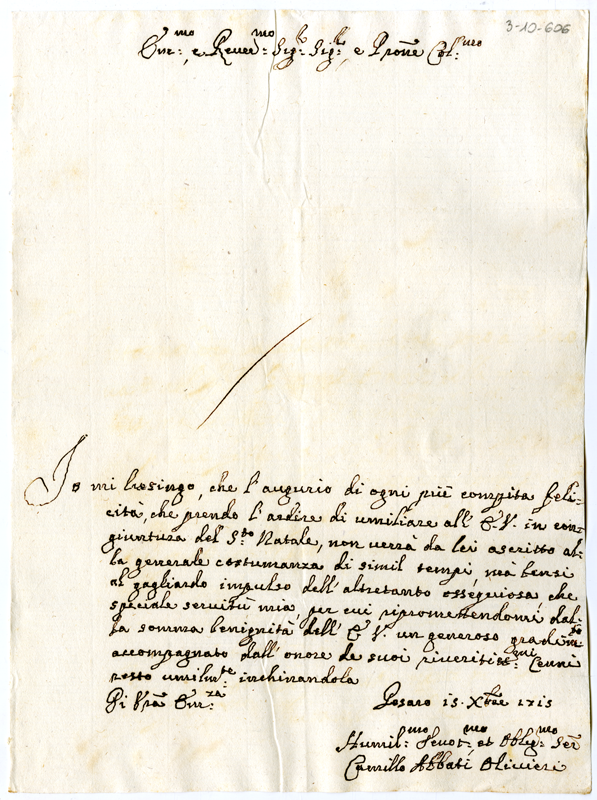 3-10-606
Em:mo, e Rever:mo Sig:re Sig:re, e Prone Col:mo
Io mi lusingo, che l'augurio di ogni più compita feli-
cità, che prendo l'ardire di umiliare all'E. V. in con-
giuntura del S:to Natale, non verrà da lei ascritto al-
la generale costumanza di simil tempi, mà bensì
al gagliardo impulso dell'altretanto ossequiosa che
speciale servitù mia per cui ripromettendomi dal-
la somma benignità dell'E. V. un generoso gradim:to
accompagnato dall'onore de suoi riveritiss:mi Cenni
resto umilm:te inchinandola
Di Vra Em:za
Pesaro 15. Xbre 1715
Humil:mo Devot:mo et Oblig:mo Ser
Camillo Abbati Olivieri